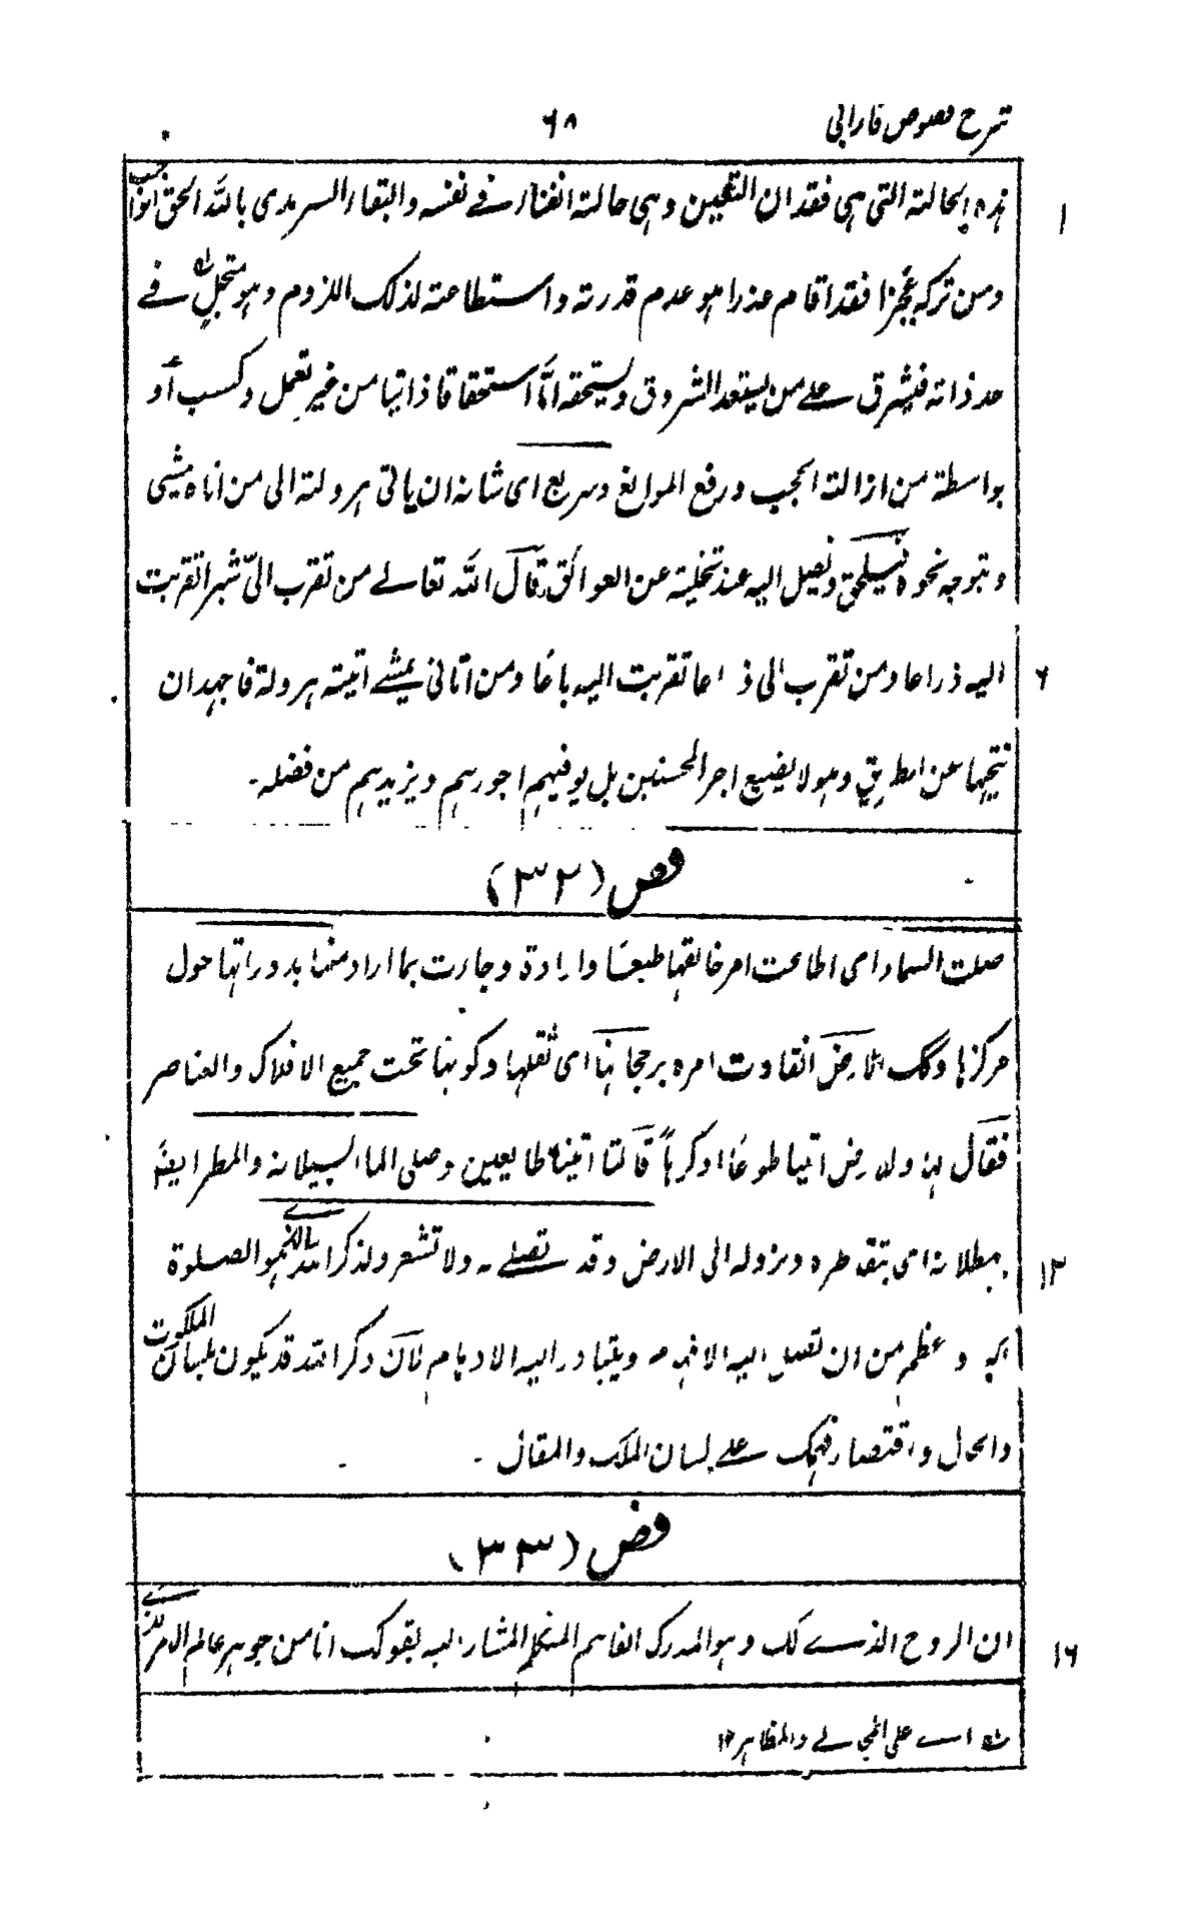 شرح فصوص فارابي
٦٨
هذه الحالة التي هي فقدان التعين وهي حالة الفناء في نفسه والبقاء السرمدي بالله الحق الواجب
١
ومن تركه عجزا فقد اقام عذرا هو عدم قدرته واستطاعته لذلك اللزوم وهو متجل له في
حد ذاته فيشرق على من يستعد الشروق ويستحقه اما استحقاقا ذاتيا من غير تعمل وكسب او
بواسطة من ازالة الحجب ورفع الموانع وسريع اى شانه ان ياتى هرولة الى من اتاه مشيى
ويتوجه نحوه فيلحق ونصل اليه عند تخلية عن العوائق قال الله تعالے من تقرب الىّ شبرا تقربت
اليه ذراعا ومن تقرب الى ذراعا تقربت اليه باعًا ومن اتانى يمشے اتيته هرولة فاجهد ان
٦
تنحيها عن الطريق وهو لا يضيع اجر المحسنين بل يوفيهم اجورهم ويزيدهم من فضله -
فص (٣٢)
صلت السماء اى اطاعت امر خالقها طبعًا وارادة وجاءت بما اراد منها بدورانها حول
مركزها وكك الارض انقادت امره برجحانها اى ثقلها وكونها تحت جميع الافلاك والعناصر
فقال لها وللارض اتيا طوعًا اوكرهاً قالتا اتينا طايعين وصلى الماء لسيلانه والمطر ايضًا
بهطلانه اى بتقاطره ونزوله الى الارض وقد تصلے - ولا تشعر ولذكر الله بالنحو الصلوة
١٢
اكبر وعظم من ان تصل اليه الافهام ويتبادر اليه الاوهام لان ذكر الله قد يكون بلسان الملكوت
والحال واقتصار فهمك علے لسان الملك والمقال -
فص (٣٣)
ان الروح الذے لك وهو المدرك الفاهم المتكلم المشار اليه بقولك انا من جوهر عالم الامر
١٦
له اے على المجالے والمظاهر ١٢